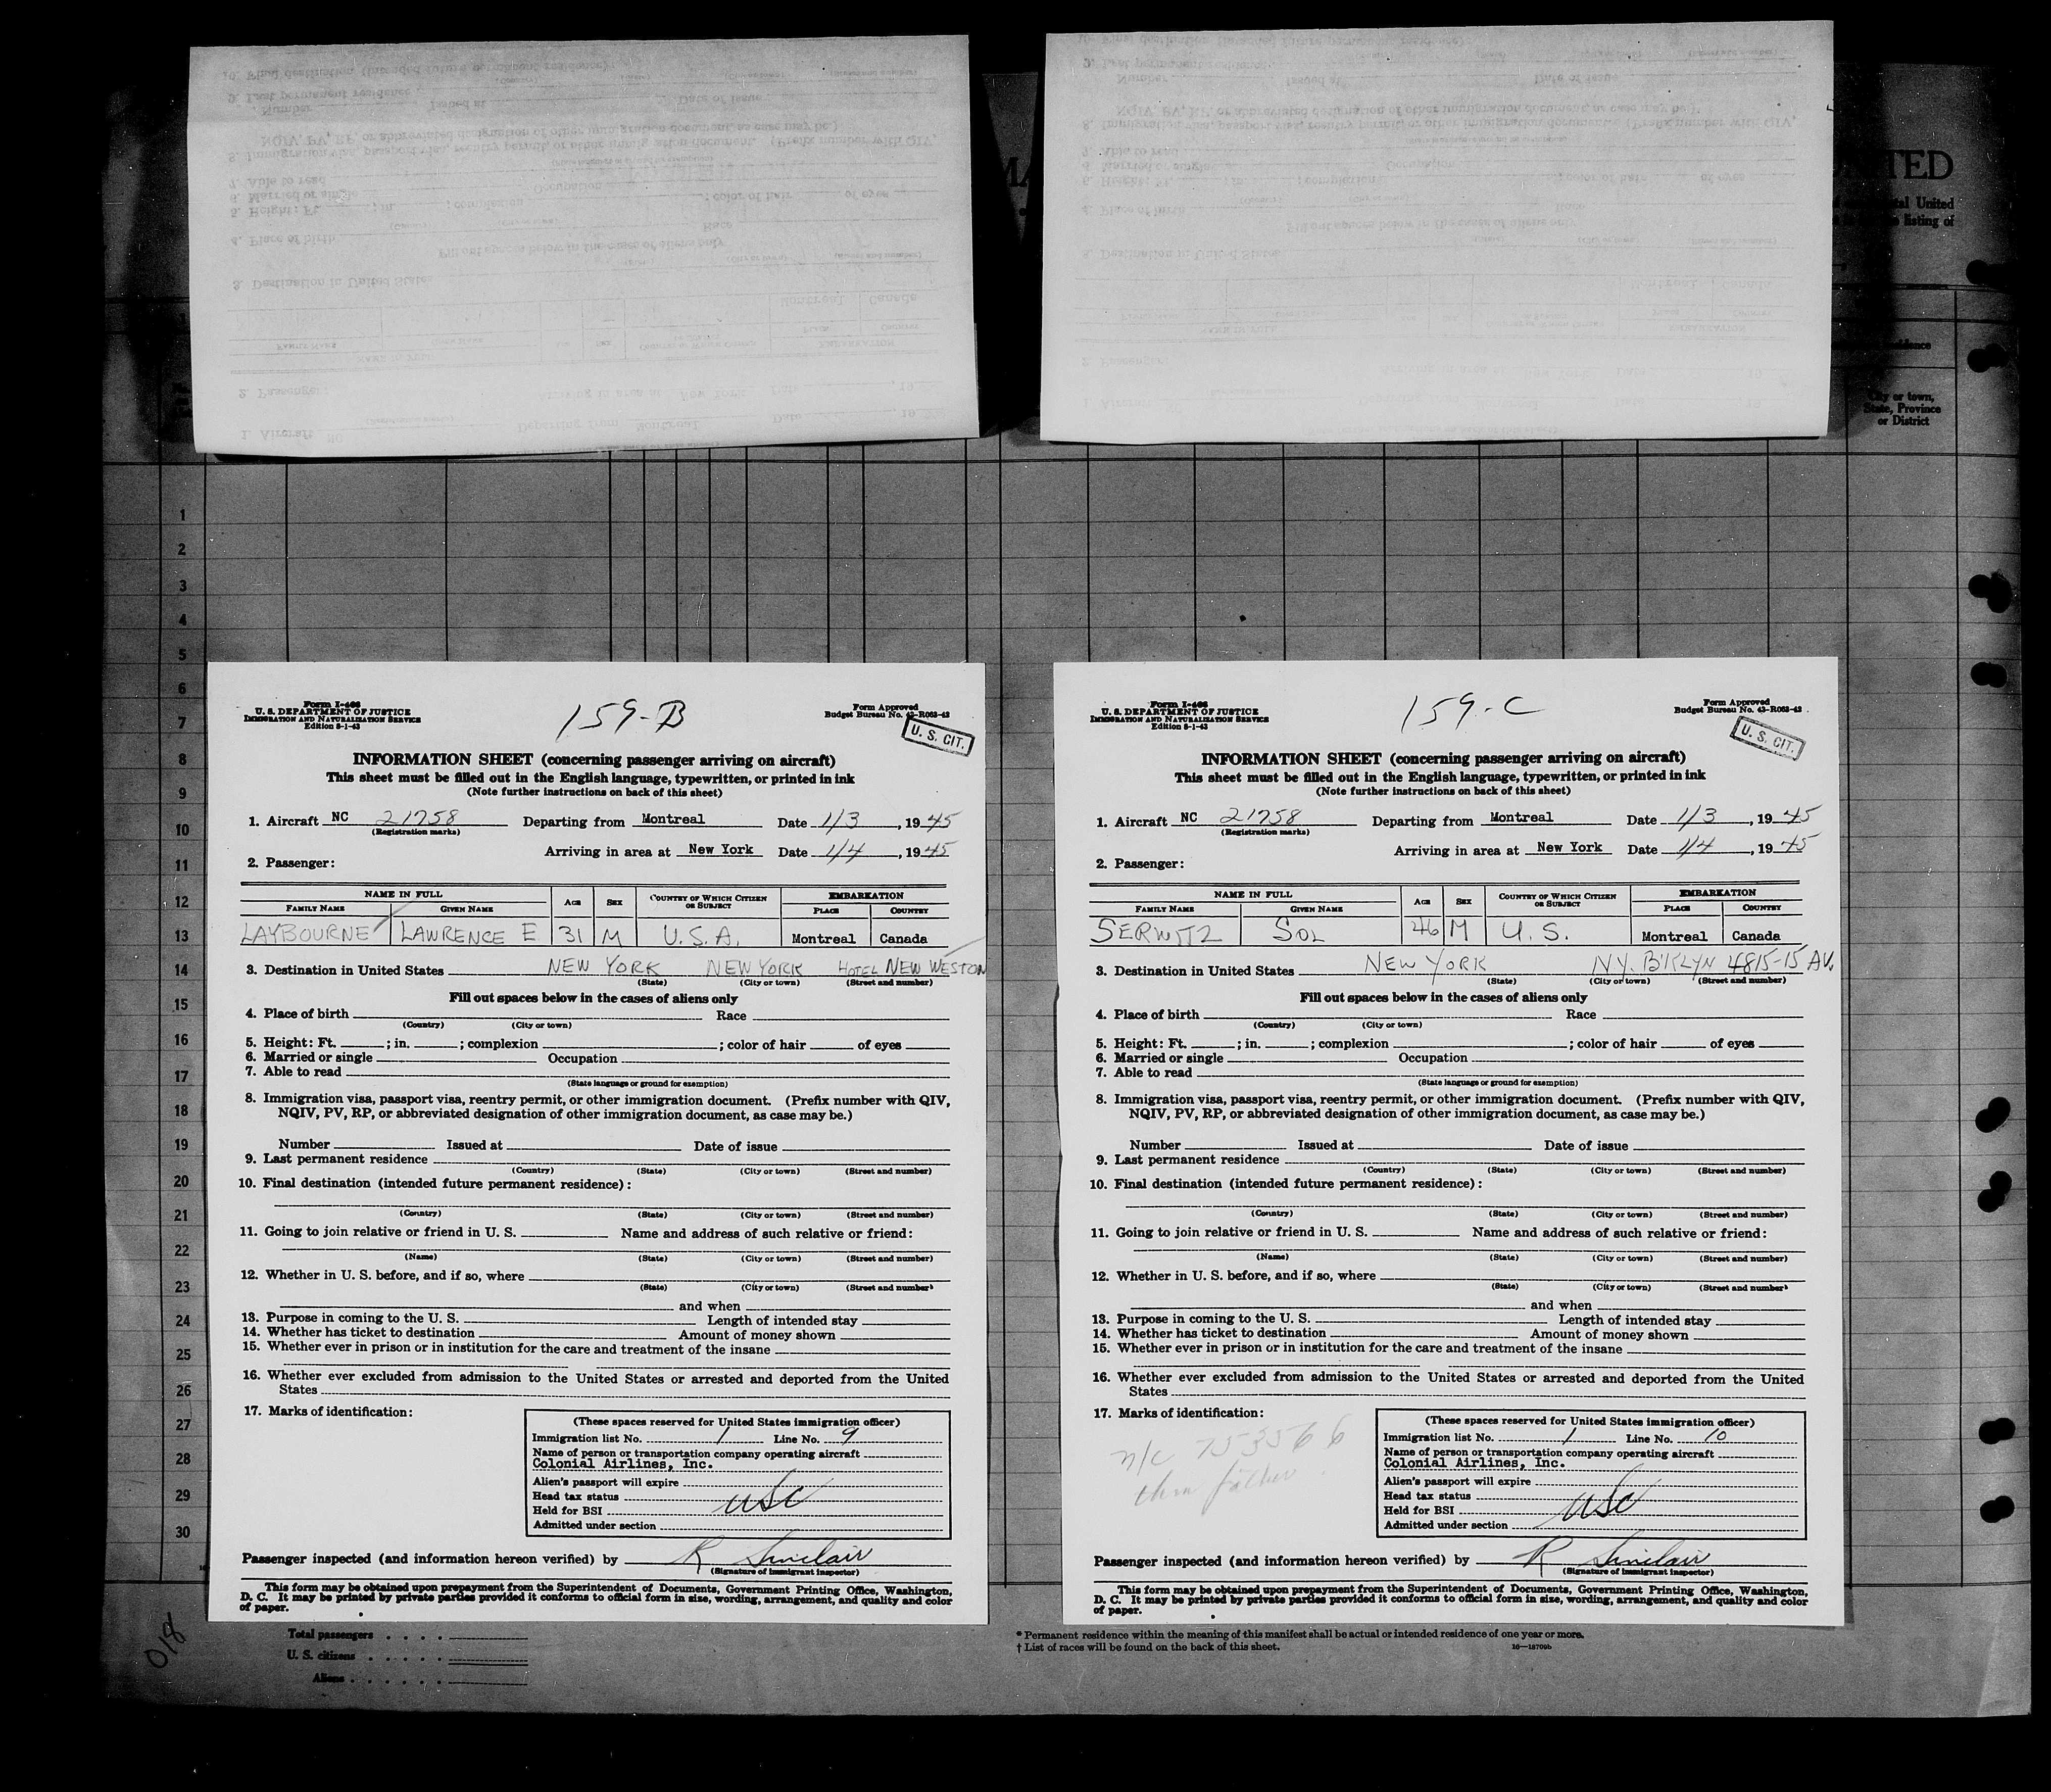 TED
tal United
listing of
City or town,
State, Province
or District
1
2
3
4
5
6
7
8
9
10
11
12
13
14
15
16
17
18
19
20
21
22
23
24
25
26
27
28
29
30
Form I-466
U. S. DEPARTMENT OF JUSTICE
IMMIGRATION AND NATURALIZATION SERVICE
Edition 5-1-43
159-B
Form Approved
Budget Bureau No. 43-R063-42
U. S. CIT.
INFORMATION SHEET (concerning passenger arriving on aircraft)
This sheet must be filled out in the English language, typewritten, or printed in ink
(Note further instructions on back of this sheet)
1. Aircraft NC 21758 Departing from Montreal Date 1/3, 1945
(Registration marks)
Arriving in area at New York Date 1/4, 1945
2. Passenger:
NAME IN FULL AGE SEX COUNTRY OF WHICH CITIZEN OR SUBJECT EMBARKATION
FAMILY NAME GIVEN NAME PLACE COUNTRY
LAYBOURNE LAWRENCE E 31 M U.S.A. Montreal Canada
3. Destination in United States NEW YORK NEW YORK HOTEL NEW WESTON
(State) (City or town) (Street and number)
Fill out spaces below in the cases of aliens only
4. Place of birth Race
(Country) (City or town)
5. Height: Ft. ; in. ; complexion ; color of hair of eyes
6. Married or single Occupation
7. Able to read
(State language or ground for exemption)
8. Immigration visa, passport visa, reentry permit, or other immigration document. (Prefix number with QIV,
NQIV, PV, RP, or abbreviated designation of other immigration document, as case may be.)
Number Issued at Date of issue
9. Last permanent residence
(Country) (State) (City or town) (Street and number)
10. Final destination (intended future permanent residence):
(Country) (State) (City or town) (Street and number)
11. Going to join relative or friend in U. S. Name and address of such relative or friend:
(Name) (State) (City or town) (Street and number)
12. Whether in U. S. before, and if so, where
(State) (City or town) (Street and number)
and when
13. Purpose in coming to the U. S. Length of intended stay
14. Whether has ticket to destination Amount of money shown
15. Whether ever in prison or in institution for the care and treatment of the insane
16. Whether ever excluded from admission to the United States or arrested and deported from the United
States
17. Marks of identification:
(These spaces reserved for United States immigration officer)
Immigration list No. 1 Line No. 9
Name of person or transportation company operating aircraft
Colonial Airlines, Inc.
Alien's passport will expire
Head tax status USC
Held for BSI
Admitted under section
Passenger inspected (and information hereon verified) by R Sinclair
(Signature of immigrant inspector)
This form may be obtained upon prepayment from the Superintendent of Documents, Government Printing Office, Washington,
D. C. It may be printed by private parties provided it conforms to official form in size, wording, arrangement, and quality and color
of paper.
Form I-466
U. S. DEPARTMENT OF JUSTICE
IMMIGRATION AND NATURALIZATION SERVICE
Edition 5-1-43
159-C
Form Approved
Budget Bureau No. 43-R063-42
U. S. CIT.
INFORMATION SHEET (concerning passenger arriving on aircraft)
This sheet must be filled out in the English language, typewritten, or printed in ink
(Note further instructions on back of this sheet)
1. Aircraft NC 21758 Departing from Montreal Date 1/3, 1945
(Registration marks)
Arriving in area at New York Date 1/4, 1945
2. Passenger:
NAME IN FULL AGE SEX COUNTRY OF WHICH CITIZEN OR SUBJECT EMBARKATION
FAMILY NAME GIVEN NAME PLACE COUNTRY
SERWITZ SOL 46 M U.S. Montreal Canada
3. Destination in United States NEW YORK N.Y. B'KLYN 4815-15 AV.
(State) (City or town) (Street and number)
Fill out spaces below in the cases of aliens only
4. Place of birth Race
(Country) (City or town)
5. Height: Ft. ; in. ; complexion ; color of hair of eyes
6. Married or single Occupation
7. Able to read
(State language or ground for exemption)
8. Immigration visa, passport visa, reentry permit, or other immigration document. (Prefix number with QIV,
NQIV, PV, RP, or abbreviated designation of other immigration document, as case may be.)
Number Issued at Date of issue
9. Last permanent residence
(Country) (State) (City or town) (Street and number)
10. Final destination (intended future permanent residence):
(Country) (State) (City or town) (Street and number)
11. Going to join relative or friend in U. S. Name and address of such relative or friend:
(Name) (State) (City or town) (Street and number)
12. Whether in U. S. before, and if so, where
(State) (City or town) (Street and number)
and when
13. Purpose in coming to the U. S. Length of intended stay
14. Whether has ticket to destination Amount of money shown
15. Whether ever in prison or in institution for the care and treatment of the insane
16. Whether ever excluded from admission to the United States or arrested and deported from the United
States
17. Marks of identification:
n/c 753566
thru father
(These spaces reserved for United States immigration officer)
Immigration list No. 1 Line No. 10
Name of person or transportation company operating aircraft
Colonial Airlines, Inc.
Alien's passport will expire
Head tax status USC
Held for BSI
Admitted under section
Passenger inspected (and information hereon verified) by R Sinclair
(Signature of immigrant inspector)
This form may be obtained upon prepayment from the Superintendent of Documents, Government Printing Office, Washington,
D. C. It may be printed by private parties provided it conforms to official form in size, wording, arrangement, and quality and color
of paper.
018
Total passengers . . . .
U. S. citizens . . . . .
Aliens . . . . . .
* Permanent residence within the meaning of this manifest shall be actual or intended residence of one year or more.
† List of races will be found on the back of this sheet.
16—18709b